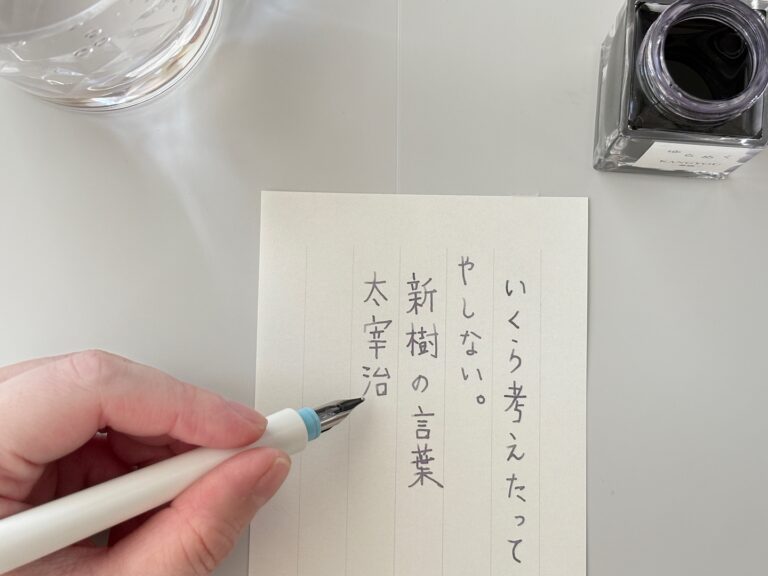 いくら考えたって
やしない。
新樹の言葉
太宰治
ゆらめく